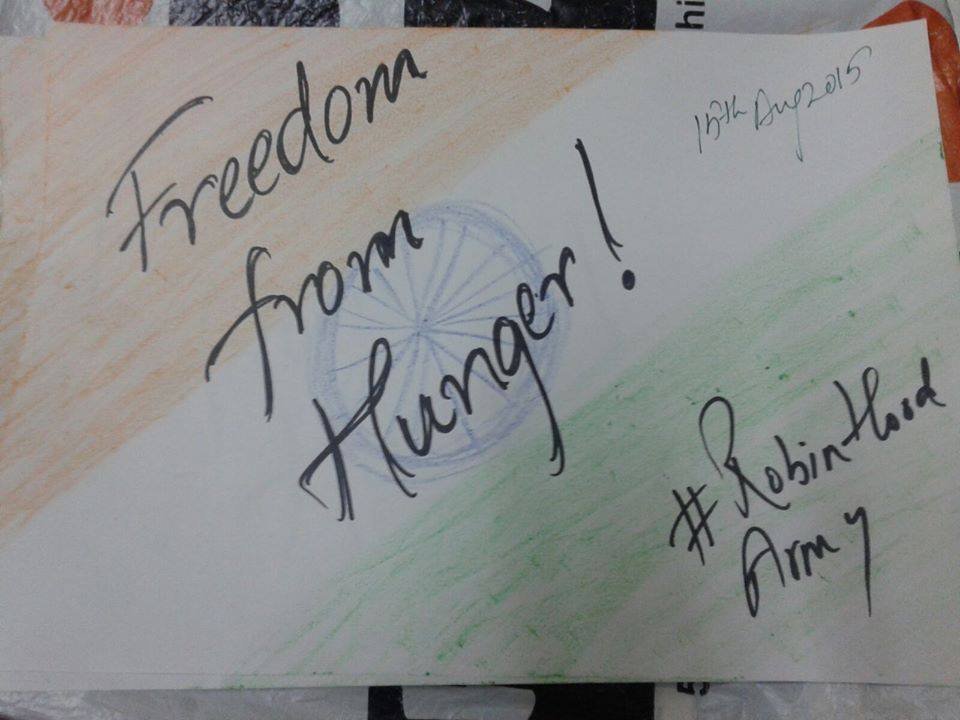 15th Aug 2015
Freedom
from
Hunger!
#RobinHood
Army
hi
5